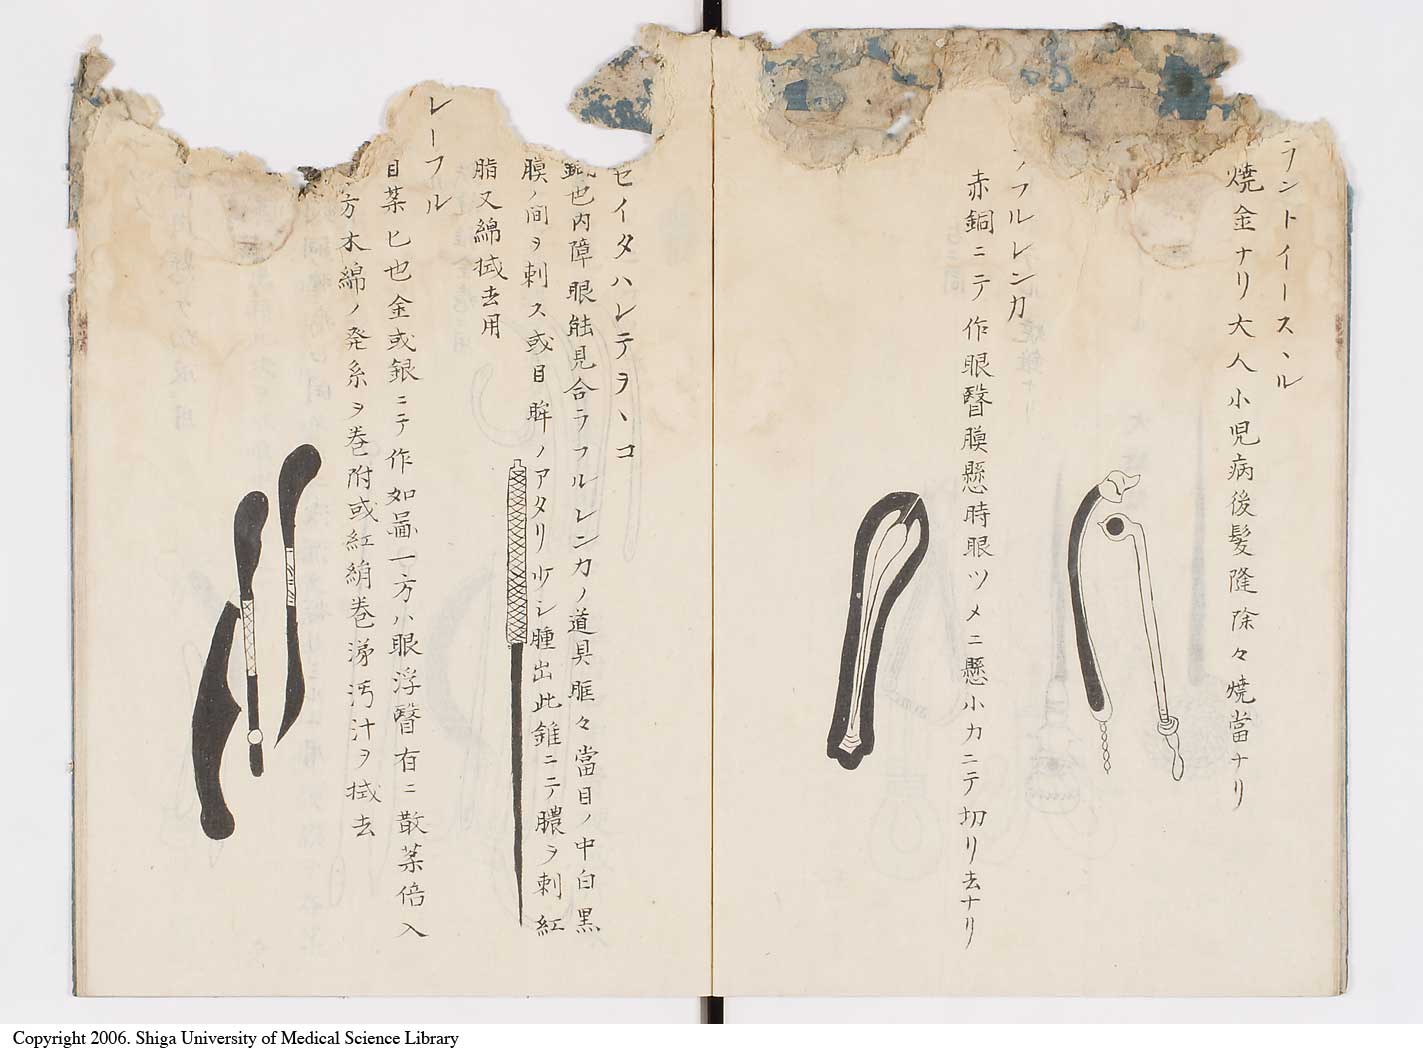 ラントイースヽル
焼金ナリ大人小児病後髪隆除々焼當ナリ
フルレンカ
赤銅ニテ作眼瞖膜懸時眼ツメニ懸小カニテ切リ去ナリ
セイタハレテヲヽコ
也内障眼能見合ラフルレンカノ道具眶々當目ノ中白黒
膜ノ間ヲ刺ス或目眸ノアタリ少シ腫出此錐ニテ膿ヲ刺紅
脂又綿拭去用
レーフル
目薬匕也金或銀ニテ作如啚一方ハ眼浮瞖有ニ散薬倍入
方木綿ノ発糸ヲ巻附或紅絹巻涕汚汁ヲ拭去
Copyright 2006. Shiga University of Medical Science Library